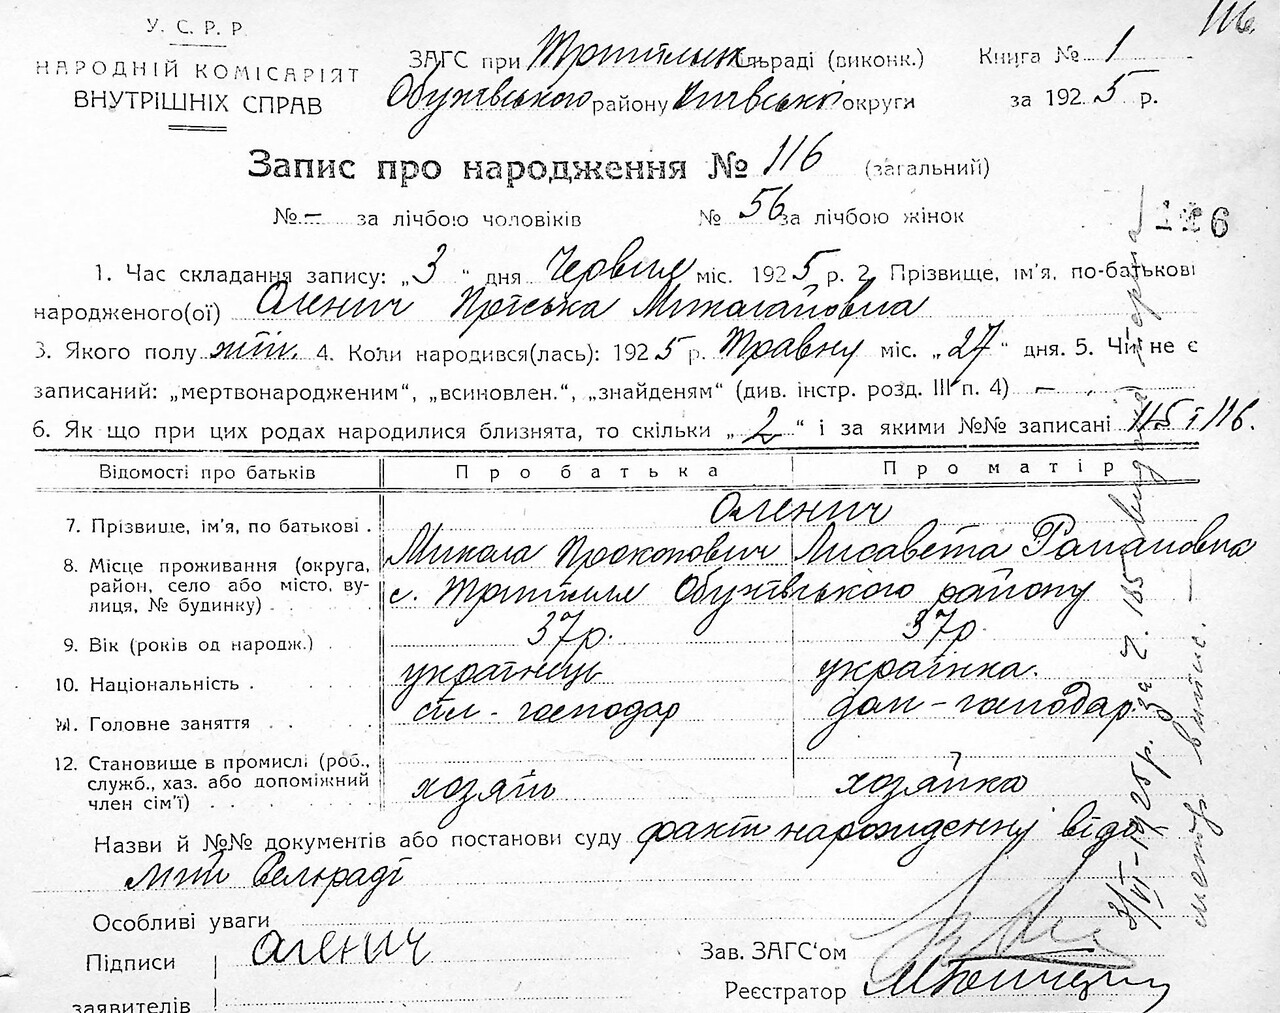 116.
У. С. Р. Р.
НАРОДНІЙ КОМІСАРІЯТ
ВНУТРІШНІХ СПРАВ
ЗАГС при Трипільськ сільраді (виконк.)
Обухівського району Київської округи
Книга № 1
за 1925 р.
Запис про народження № 116 (загальний)
№ — за лічбою чоловіків № 56 за лічбою жінок
116
1. Час складання запису: „3“ дня Червня міс. 1925 р. 2. Прізвище, ім'я, по-батькові
народженого(ої) Оленич Пріська Миколаївна
3. Якого полу жін. 4. Коли народився(лась): 1925 р. Травня міс. „27“ дня. 5. Чи не є
записаний: „мертвонародженим“, „всиновлен.“, „знайденям“ (див. інстр. розд. III п. 4) —
6. Як що при цих родах народилися близнята, то скільки „2“ і за якими №№ записані 115 і 116.
Відомості про батьків Про батька Про матір
7. Прізвище, ім'я, по батькові . Оленич
Микола Прокопович Лисавета Романовна
8. Місце проживання (округа, район, село або місто, вулиця, № будинку) с. Трипілля Обухівського району
9. Вік (років од народж.) 37 р. 37 р.
10. Національність українець українка.
11. Головне заняття сіл-господар дом-господар
12. Становище в промислі (роб., служб., хаз. або допоміжний член сім'ї) хозяїн хозяйка
Назви й №№ документів або постанови суду факт нарождення відо
мий Сельраді
Особливі уваги
Підписи Оленич
заявителів
Зав. ЗАГС'ом
Реєстратор
3/VI-1925 р. за ч. 185 видана
метр. випис. —